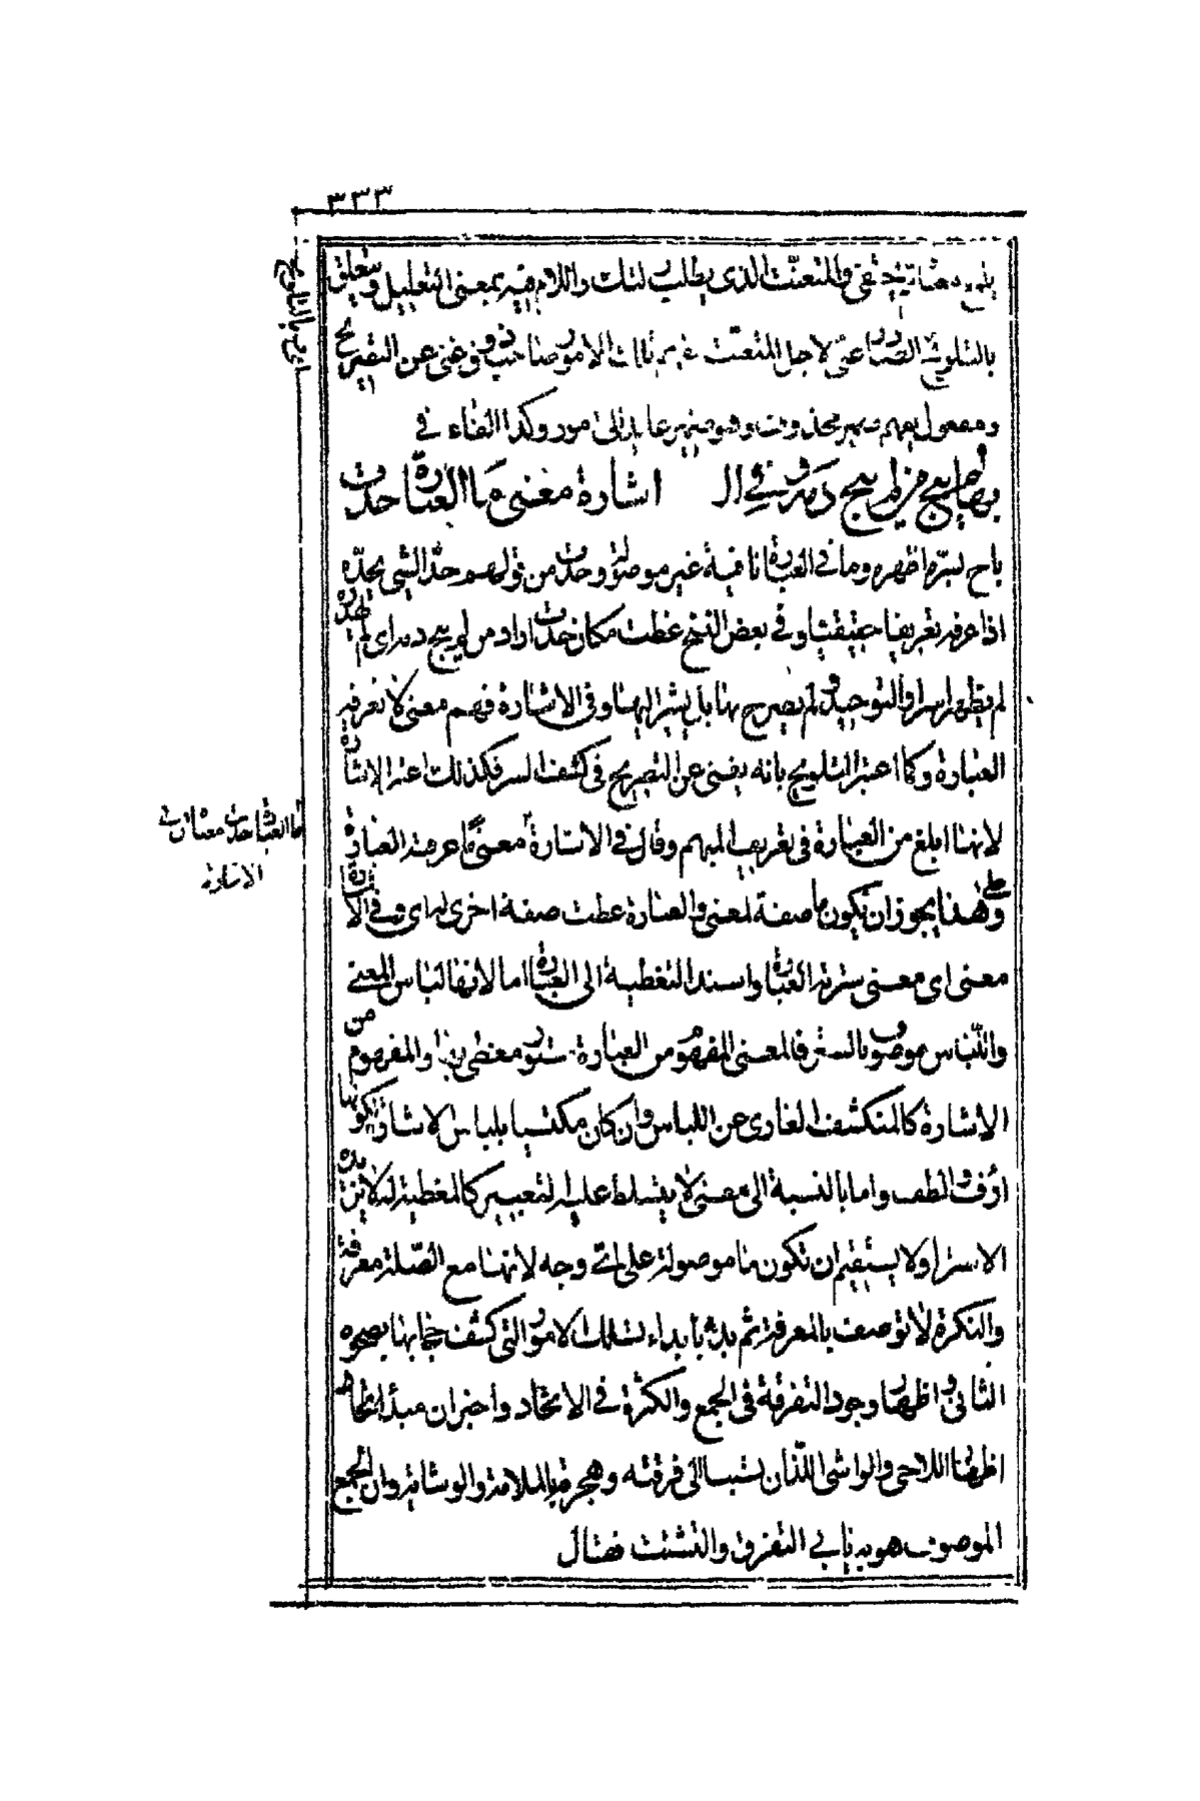 ٣٣٣
والمتعنّت الذى يطلب لتلك واللام فيه بمعنى التعليل ويتعلق
بالتلويح الصادر عنى لاجل المتعنت غنى عن التصريح
ومفعول يفهم ضمير محذوف وهو ضمير عايد الى امور وكذا الفاء فى
بها لم يبح من لم يبح دمه وفى ال اشارة معنى ما العبارة حدت
باح بسرّه اظهره وما فى العبارة نافية غير موصولة وحدت من قولهم حدّ الشئ يحدّه
اذا عرفه تعريفا حقيقيا وفى بعض النسخ غطت مكان حدت اراد من لم يبح دمه اى لم يهدره
لم يظهر اسرار التوحيد ولم يصرح بها بل يشير اليها وفى الاشارة فهم معنى لا تعرفه
العبارة وكما اعتبر التلويح بانه يغنى عن التصريح فى كشف السر فكذلك اعتبر الاشارة
لانها ابلغ من العبارة فى تعريف المبهم وقال فى الاشارة معنى ما عرفته العبارة
وعلى هذا يجوز ان تكون ما صفة لمعنى والعبارة غطت صفة اخرى له اى وفى الاشارة
معنى اى معنى سترته العبارة واسند التغطية الى العبارة اما لانها لباس المعنى
واللباس موصوف بالستر فالمعنى المفهوم من العبارة مستور مغطى بها والمفهوم من
الاشارة كالمنكشف العارى عن اللباس وان كان مكتسيا بلباس الاشارة لكونها
ارق والطف واما بالنسبة الى معنى لا يتسلط عليه التعبير كالمغطية له لا تبرزه
الاسرار ولا يستقيم ان تكون ما موصولة على اىّ وجه لانها مع الصّلة معرفة
والنكرة لا توصف بالمعرفة ثم بدأ بابداء تلك الامور التى كشف حجابها بصحوه
الثانى واظهار وجود التفرقة فى الجمع والكثرة فى الاتحاد واخبر ان مبدأ اتحاد
اظهارها اللاحى والواشى اللذان تسببا الى فرقته وهجره بالملامة والوشاية وان الجمع
الموصوف هو به يابى التفرق والتشتت فقال
ما العبارة حدت معناه فى
الاشارة